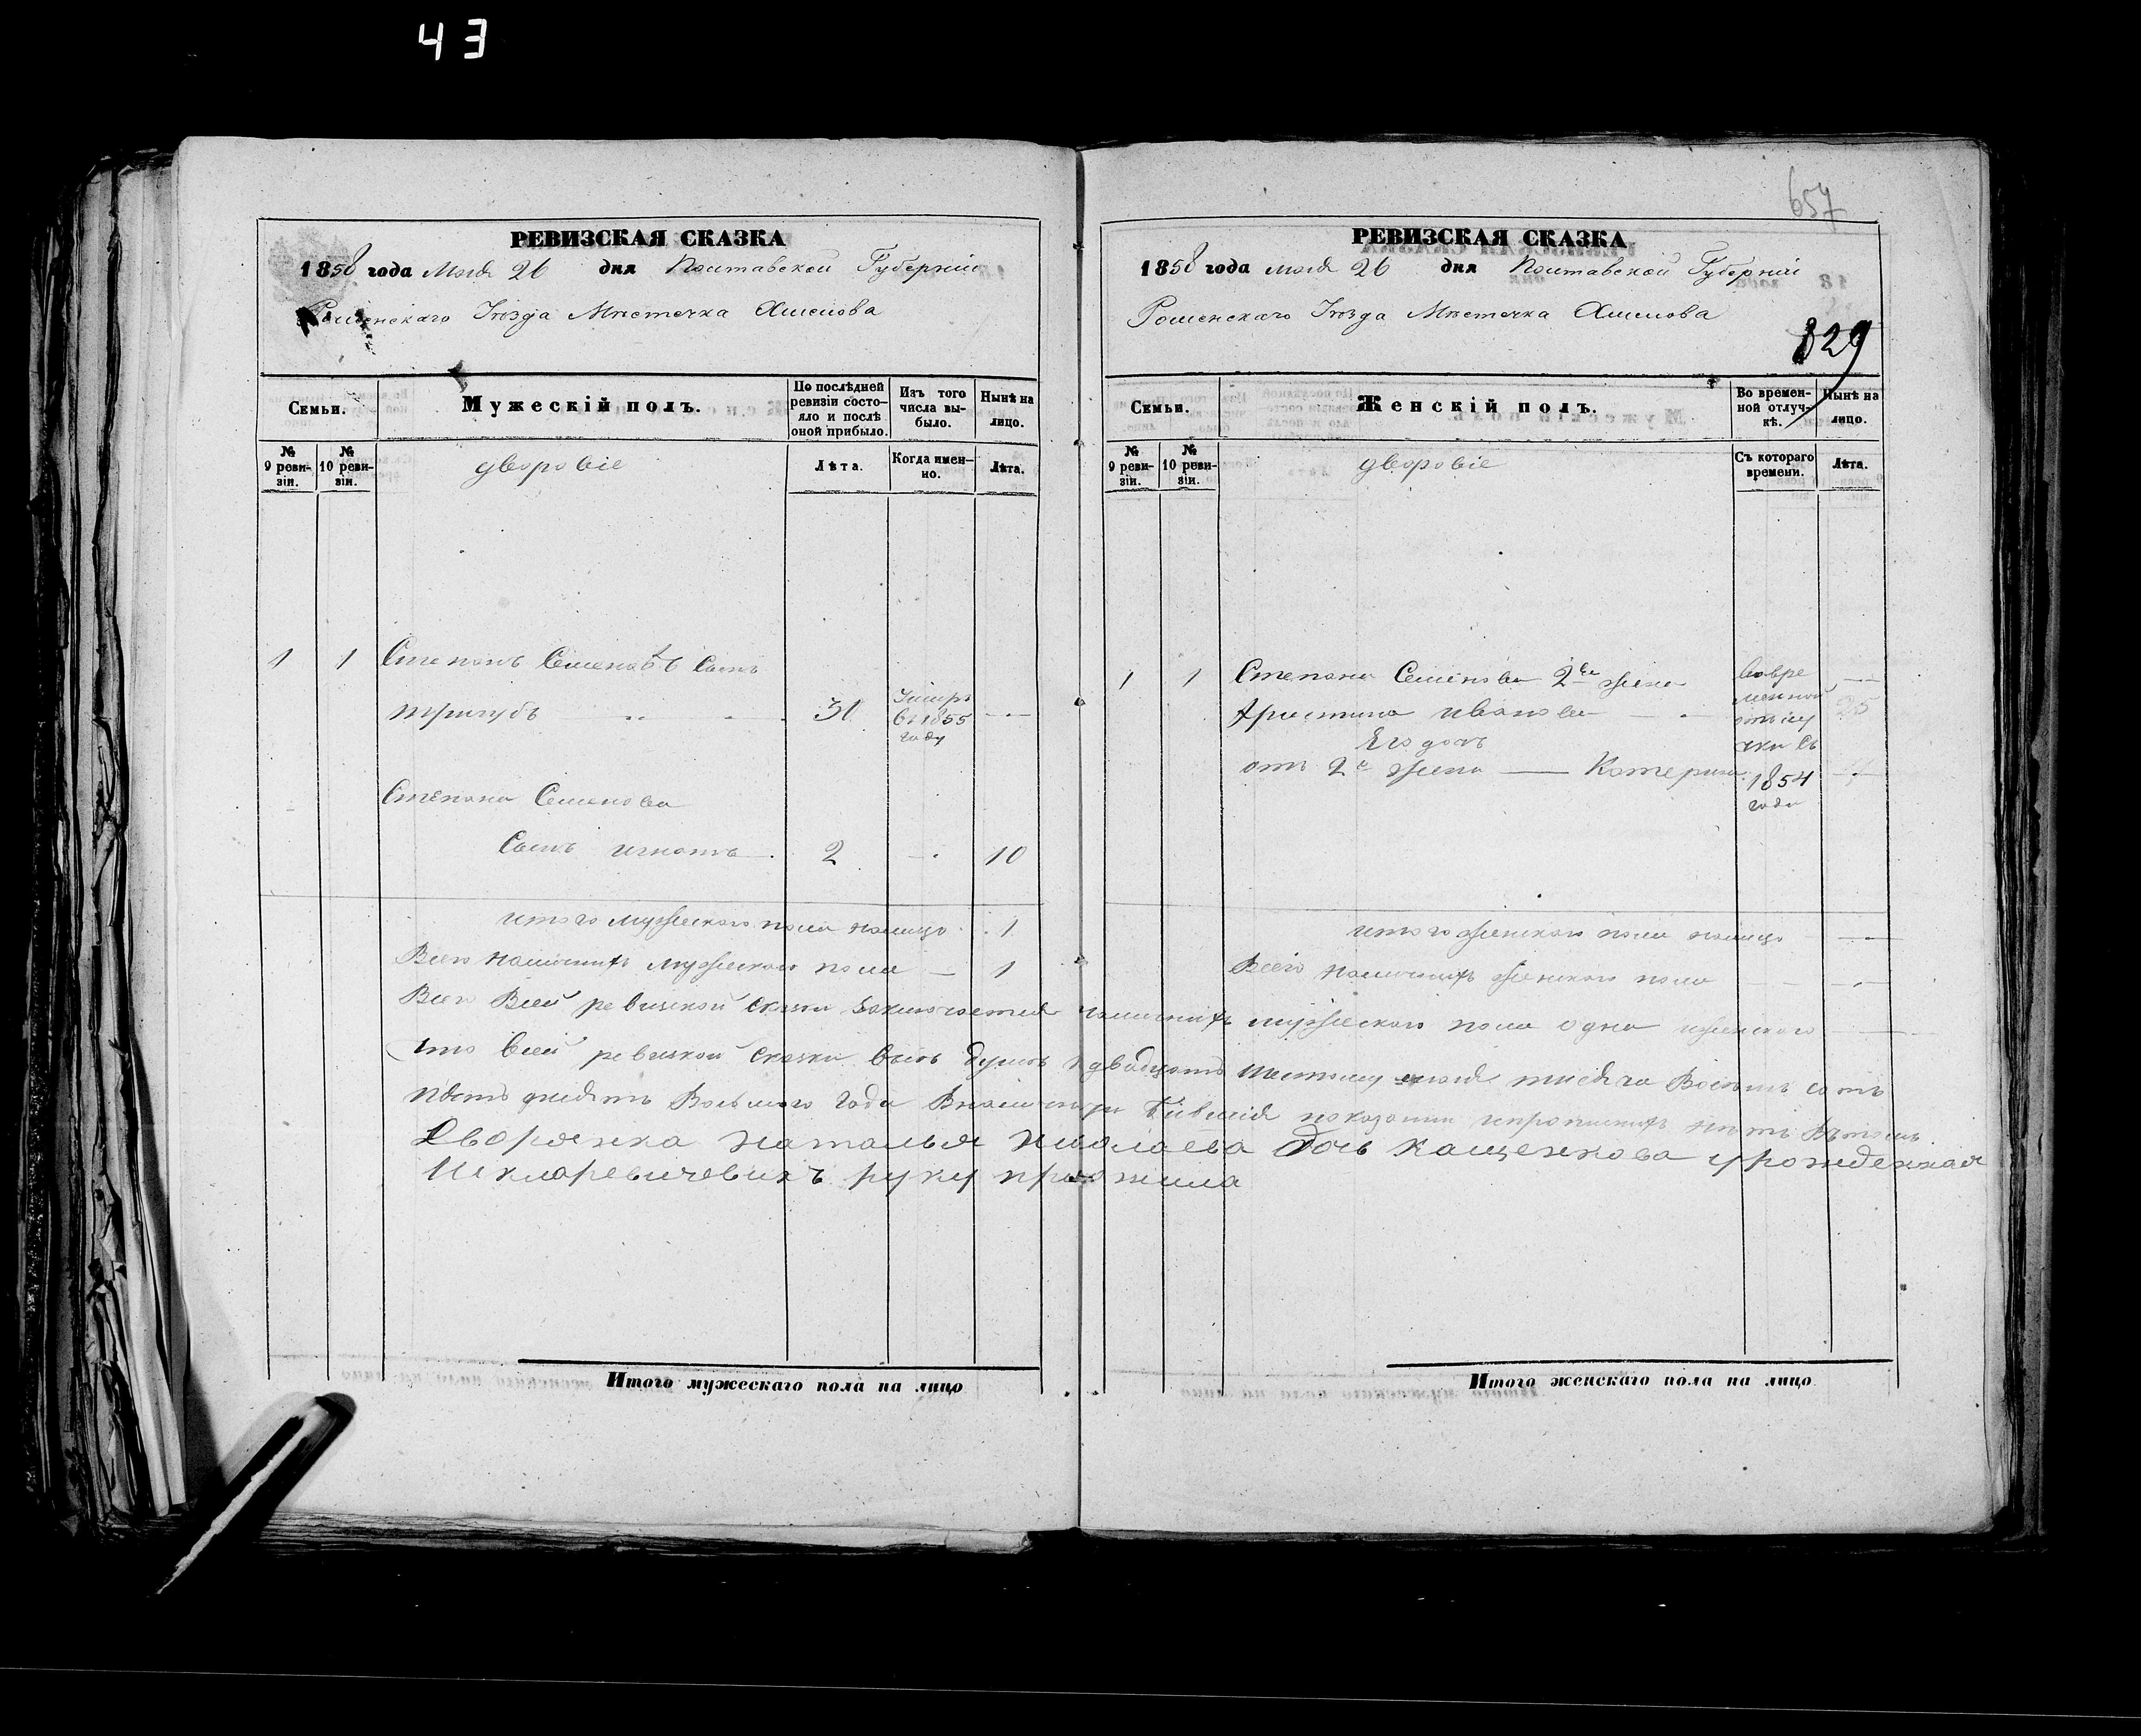 43
РЕВИЗСКАЯ СКАЗКА
1858 года Мая 26 дня Полтавской Губерніи
Роменскаго Уѣзда Мѣстечка Хмелова
Семьи.
Мужескій полъ.
По послѣдней ревизіи состо-
яло и послѣ
оной прибыло.
Изъ того
числа вы-
было.
Нынѣ на
лицо.
№
9 реви-
зіи.
№
10 реви-
зіи.
дворовіе
Лѣта.
Когда имен-
но.
Лѣта.
1 1 Степанъ Семеновъ Сынъ
тригубъ 31 Умиръ
въ 1855
году
Степана Семенова
Сынъ игнатъ 2 10
итого мужеского пола налицо 1
Всего наличнихъ мужеского пола 1
657
РЕВИЗСКАЯ СКАЗКА
1858 года мая 26 дня Полтавской Губерніи
Роменскаго Уѣзда Мѣстечка Хмелова
829
Семьи.
Женскій полъ.
Во времен-
ной отлуч-
кѣ.
Нынѣ на
лицо.
№
9 реви-
зіи.
№
10 реви-
зіи.
дворовіе
Съ котораго
времени.
Лѣта.
1 1 Степана Семенова 2ва жена
Христина иванова
Его дочь
отъ 2й жены — Катерина
вовре
менной
отлу
чки съ
1854
года
итого женского пола налицо
Всего наличнихъ женского пола
Всего Всей ревизской сказки заключается наличнихъ мужеского пола одна иженского
что всей ревизкой сказки всѣхъ душъ двадцать шестому мая тисяча Восемъ сотъ
пятъ десятъ Восьмого года бившія показани ипрописнихъ нѣтъ Вътомъ
Дворянка наталья николаева дочь кащенкова урожденная
Шкляревичевихъ руку приложила
Итого мужескаго пола на лицо
Итого женскаго пола на лицо